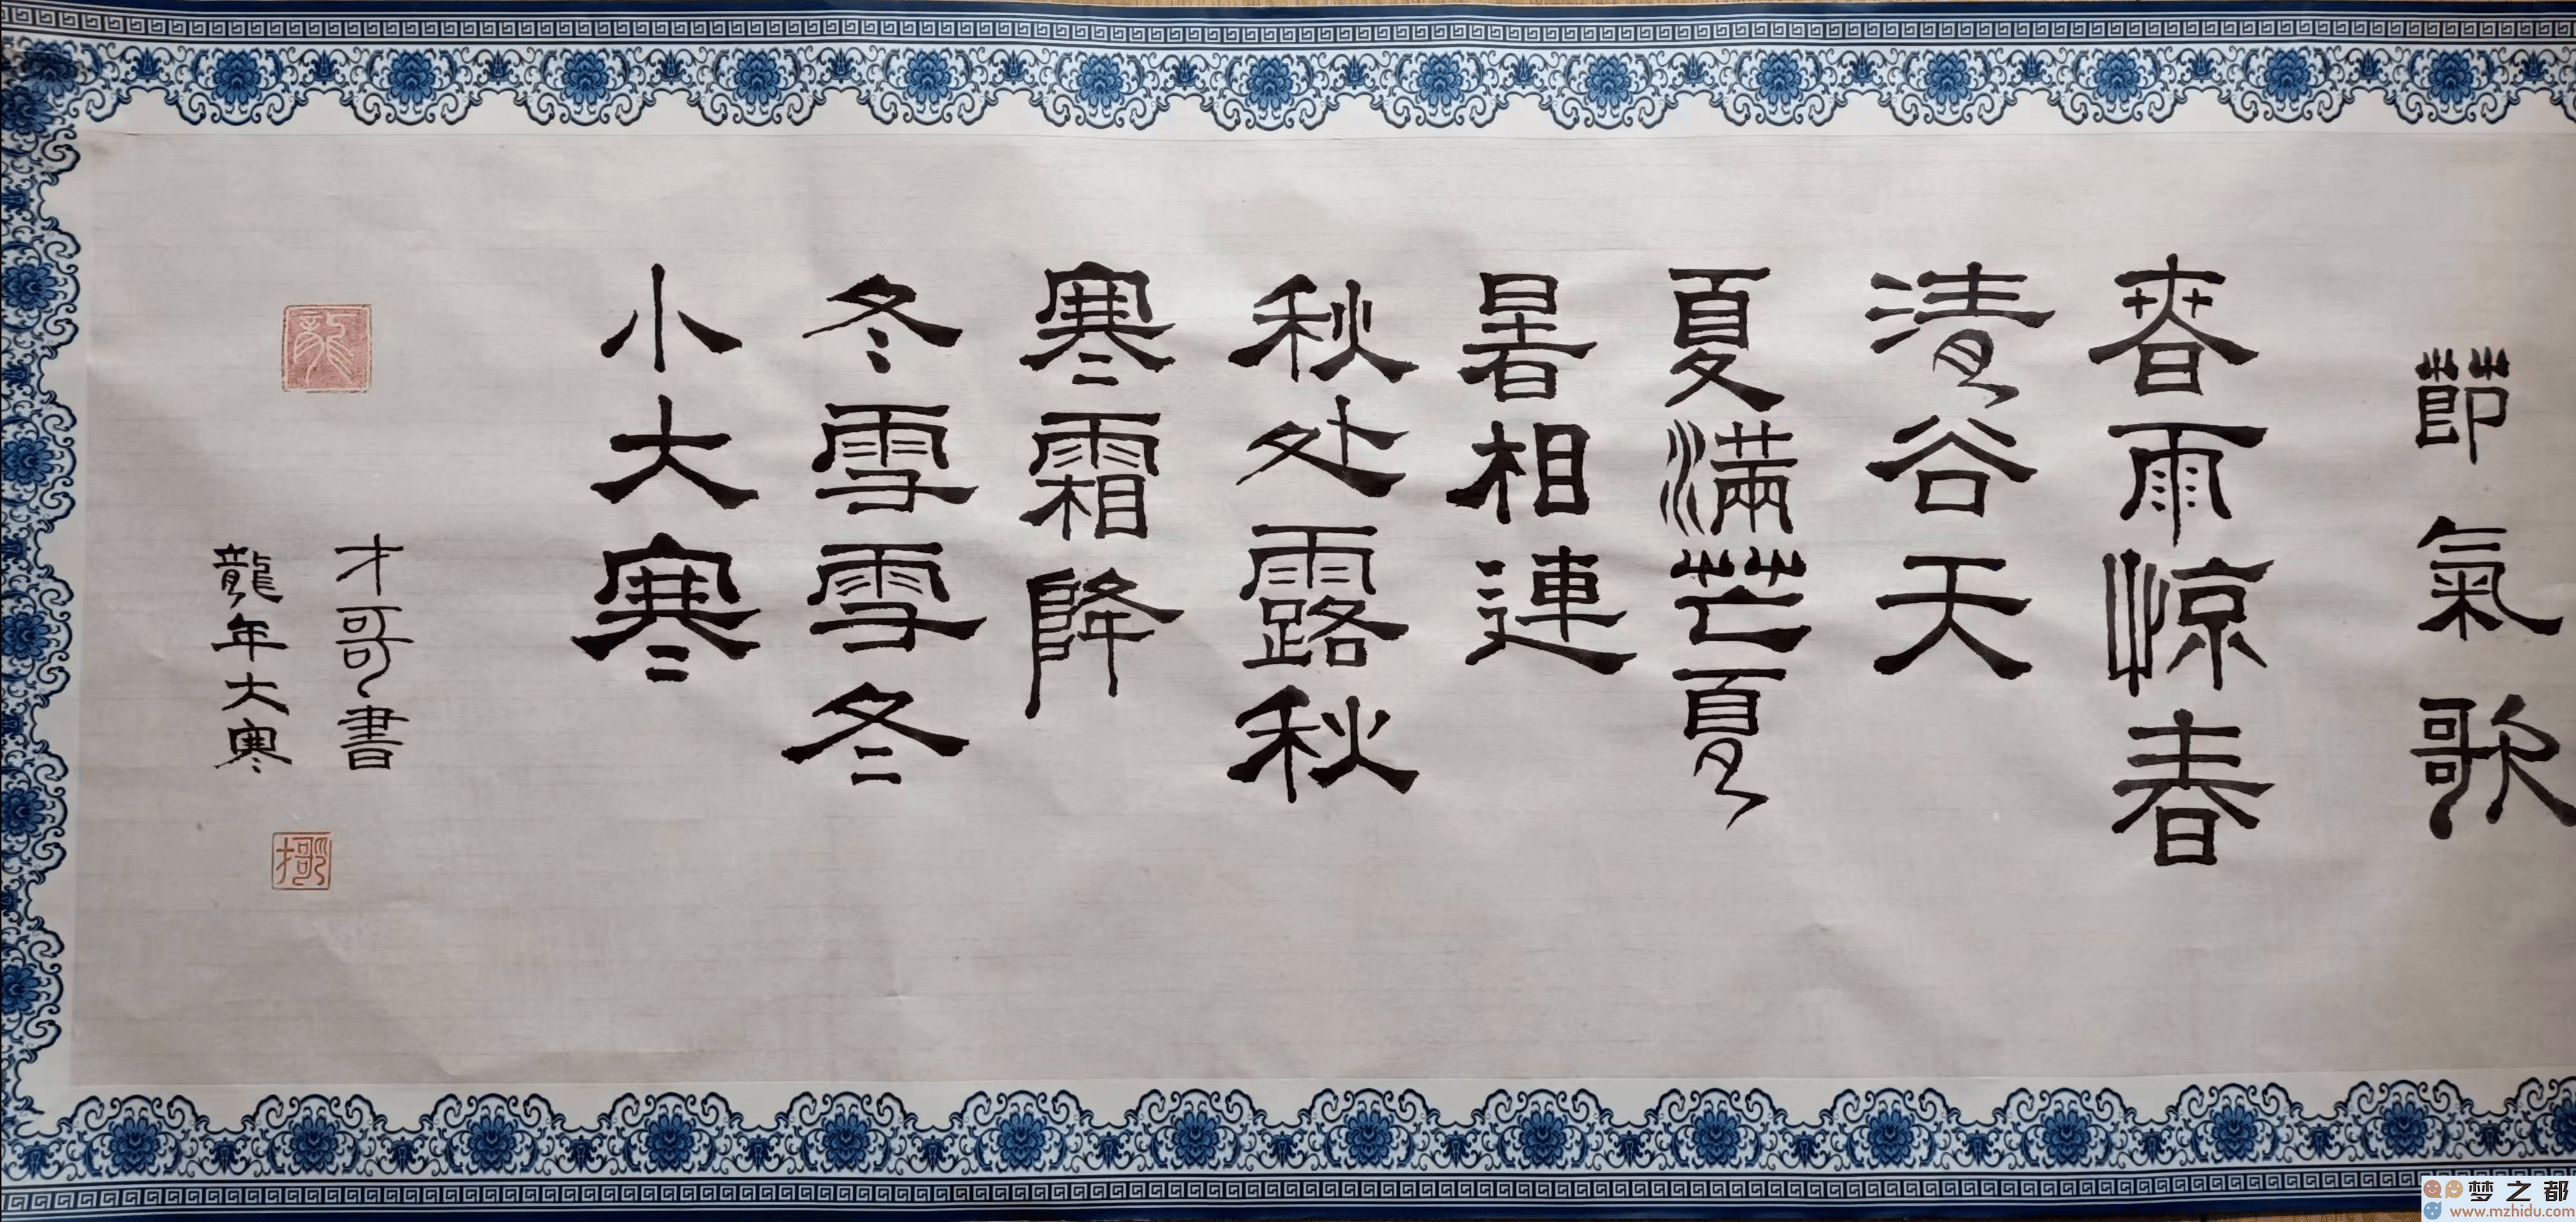 節氣歌
春雨惊春
清谷天
夏滿芒夏
暑相連
秋处露秋
寒霜降
冬雪雪冬
小大寒
才哥書
龍年大寒
龍
才哥
梦之都
www.mzhidu.com